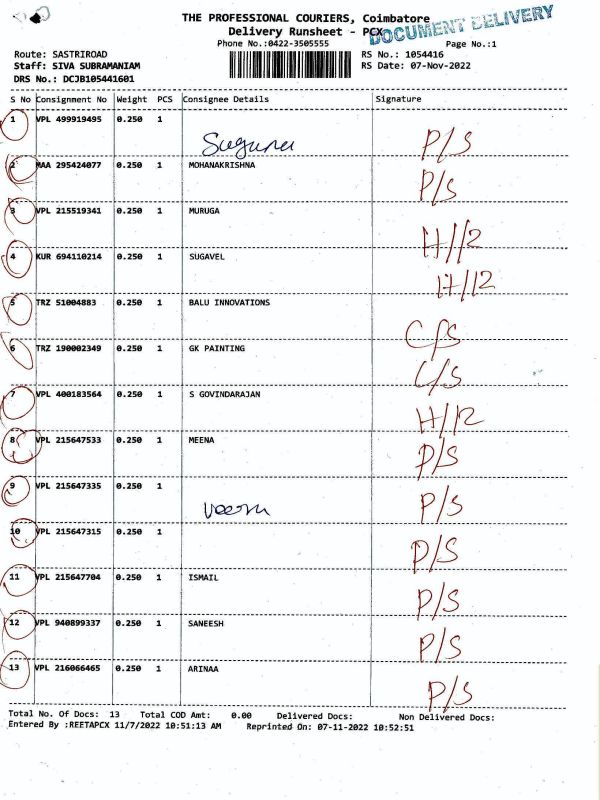 THE PROFESSIONAL COURIERS, Coimbatore
Delivery Runsheet - PCX
DOCUMENT DELIVERY
Phone No.:0422-3505555
Page No.:1
Route: SASTRIROAD
RS No.: 1054416
Staff: SIVA SUBRAMANIAM
RS Date: 07-Nov-2022
DRS No.: DCJB105441601
S No Consignment No Weight PCS Consignee Details Signature
1 VPL 499919495 0.250 1 Suguna P/S
2 MAA 295424077 0.250 1 MOHANAKRISHNA P/S
3 VPL 215519341 0.250 1 MURUGA H/12
4 KUR 694110214 0.250 1 SUGAVEL H/12
5 TRZ 51004883 0.250 1 BALU INNOVATIONS C/S
6 TRZ 190002349 0.250 1 GK PAINTING C/S
7 VPL 400183564 0.250 1 S GOVINDARAJAN H/12
8 VPL 215647533 0.250 1 MEENA P/S
9 VPL 215647335 0.250 1 P/S
10 VPL 215647315 0.250 1 P/S
11 VPL 215647704 0.250 1 ISMAIL P/S
12 VPL 940899337 0.250 1 SANEESH P/S
13 VPL 216066465 0.250 1 ARINAA P/S
Total No. Of Docs: 13 Total COD Amt: 0.00 Delivered Docs: Non Delivered Docs:
Entered By :REETAPCX 11/7/2022 10:51:13 AM Reprinted On: 07-11-2022 10:52:51